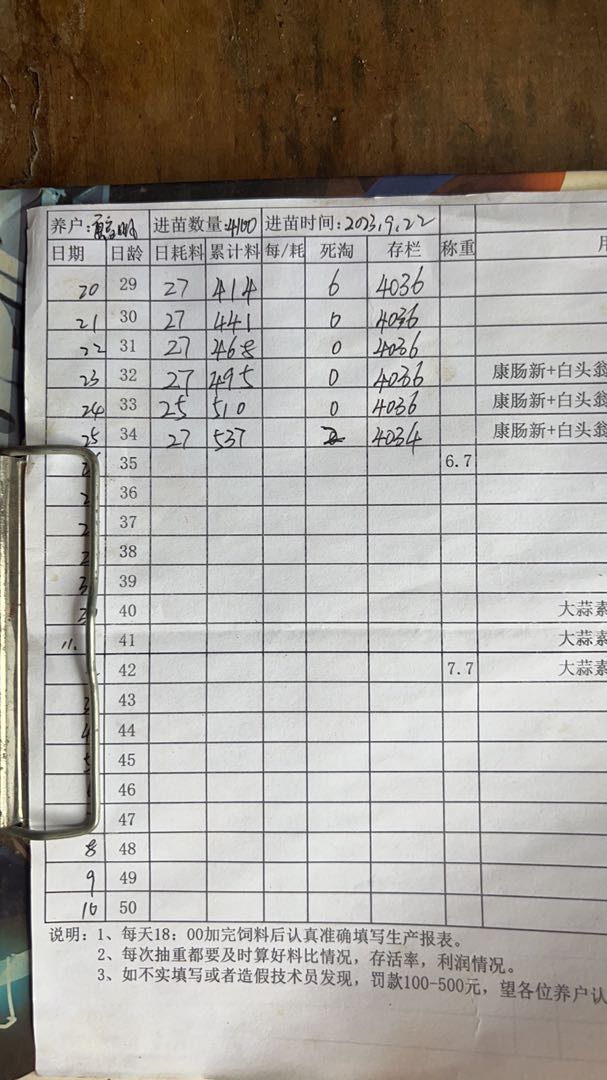 养户: 进苗数量:4100 进苗时间:2023.9.22
日期 日龄 日耗料 累计料 每/耗 死淘 存栏 称重
20 29 27 414 6 4036
21 30 27 441 0 4036
22 31 27 468 0 4036
23 32 27 495 0 4036 康肠新+白头翁
24 33 25 510 0 4036 康肠新+白头翁
25 34 27 537 2 4034 康肠新+白头翁
35 6.7
36
37
38
39
40 大蒜素
11. 41 大蒜素
42 7.7 大蒜素
3 43
4 44
5 45
46
47
8 48
9 49
10 50
说明：1、每天18：00加完饲料后认真准确填写生产报表。
2、每次抽重都要及时算好料比情况，存活率，利润情况。
3、如不实填写或者造假技术员发现，罚款100-500元，望各位养户认